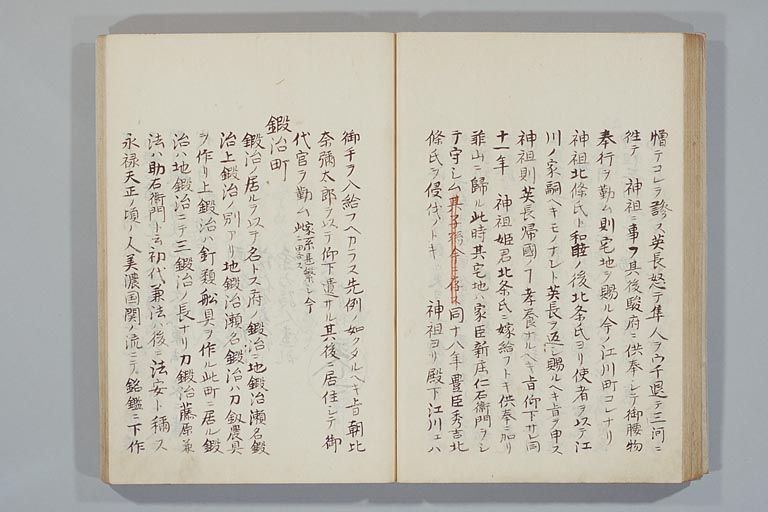 憎テコレヲ讒ス英長怒テ隼人ヲウチ退テ三河ニ
徃テ 神祖ニ事フ其後駿府ニ供奉シテ御腰物
奉行ヲ勤ム則宅地ヲ賜ル今ノ江川町コレナリ
神祖北條氏ト和睦ノ後北条氏ヨリ使者ヲ以テ江
川ノ家嗣ヘキモノナシト英長ヲ返シ賜ルヘキ旨ヲ申ス
神祖則英長帰國ノ丁孝養ナルヘキ旨仰下サレ同
十一年 神祖姫君北条氏ニ嫁給フトキ供奉ニ加リ
韮山ニ歸ル此時其宅地ハ家臣新庄仁右衛門ヲシ
テ守シム其子孫今ニ存ス同十八年豊臣秀吉北
條氏ヲ侵伐ノトキ 神祖ヨリ殿下江川エハ
御手ヲ入給フヘカラス先例ノ如クタルヘキ旨朝比
奈彌太郎ヲ以テ仰下遣サル其後ニ居住シテ御
代官ヲ勤ム家系甚繁シ今ニ畧ス
鍛冶町
鍛冶ノ居ルヲ以テ名トス府ノ鍛冶ニ地鍛冶瀬名鍛
冶上鍛冶ノ別アリ地鍛冶瀬名鍛冶ハ刀釼農具
ヲ作リ上鍛冶ハ釘類舩具ヲ作ル此町ニ居ル鍛
冶ハ地鍛冶ニテ三鍛冶ノ長ナリ刀鍛冶藤原兼
法ハ助右衛門ト云初代兼法ハ後ニ法安ト稱ス
永禄天正ノ頃ノ人美濃国関ノ流ニテ銘鑑ニ下作